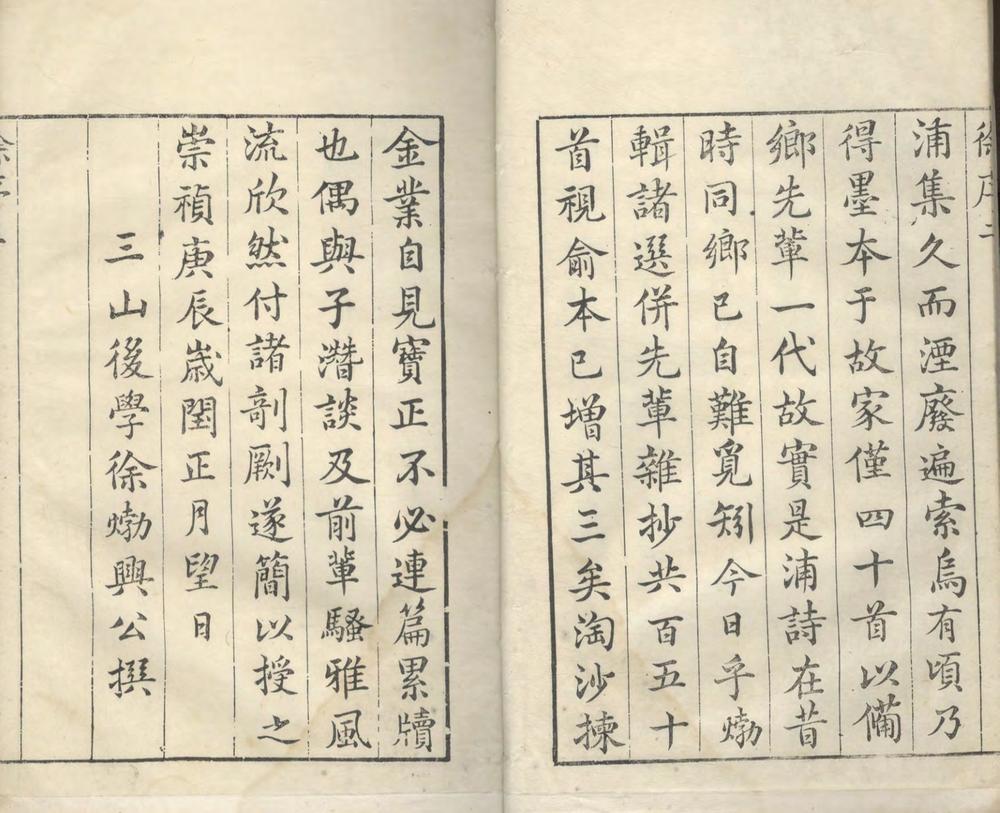 徐序 二
浦集久而湮廢遍索烏有頃乃
得墨本于故家僅四十首以備
鄉先輩一代故實是浦詩在昔
時同鄉已自難覓矧今日乎𤊹
輯諸選併先輩雜抄共百五十
首視俞本已增其三矣淘沙揀
金業自見寶正不必連篇累牘
也偶與子濳談及前輩騷雅風
流欣然付諸剞劂遂簡以授之
崇禎庚辰歲閏正月望日
三山後學徐𤊹興公撰